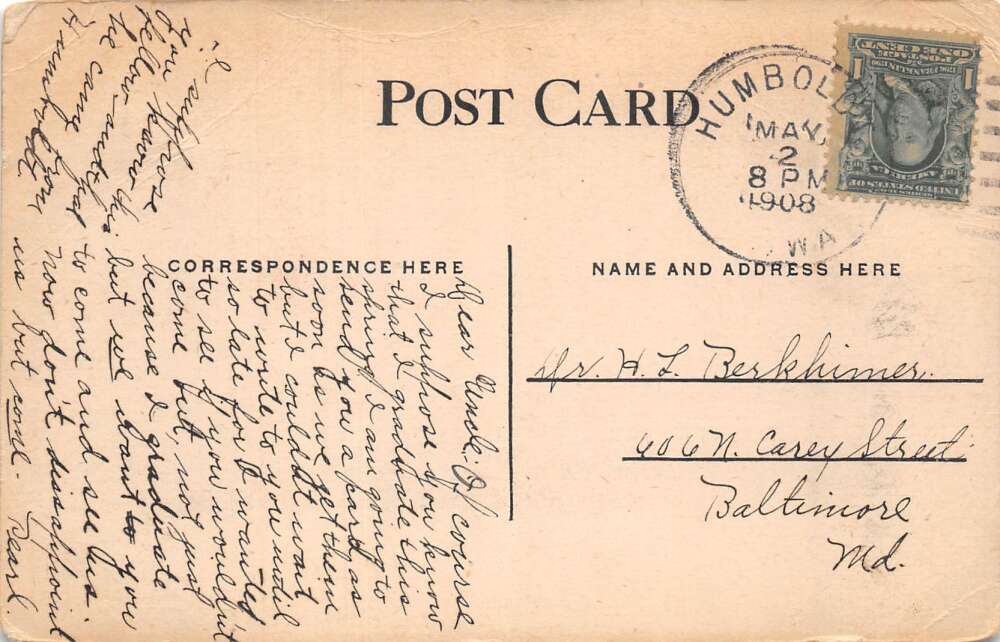 POST CARD
HUMBOL
MAY
2
8 PM
1908
WA
POSTAGE
ONE CENT
1
1
FRANKLIN
UNITED STATES OF
AMERICA
CORRESPONDENCE HERE
NAME AND ADDRESS HERE
Dear Uncle: Of course
I suppose you know
that I graduate this
spring. I am going to
send you a card as
soon as we get them
but I couldn't wait
to write to you until
so late for I wanted
to see if you wouldn't
come but, not just
because I graduate
but we want to you
to come and see us.
now don't disappoint
us but come. Pearl.
I suppose
you know this
fellow - and
he came from
Humboldt
Mr. H. L. Berkhimer.
406 N. Carey Street
Baltimore
Md.